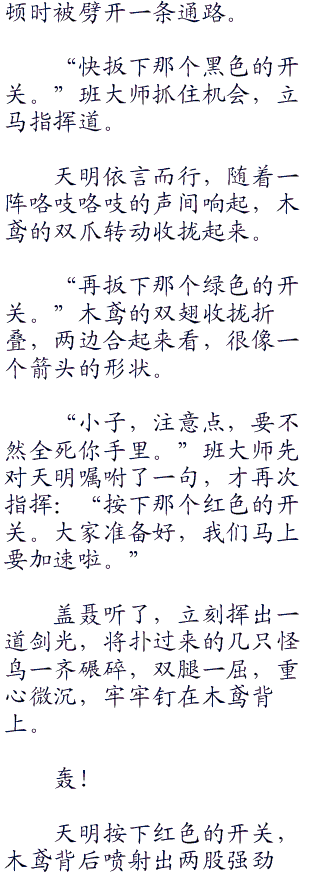 顿时被劈开一条通路。
“快扳下那个黑色的开
关。”班大师抓住机会，立
马指挥道。
天明依言而行，随着一
阵咯吱咯吱的声间响起，木
鸢的双爪转动收拢起来。
“再扳下那个绿色的开
关。”木鸢的双翅收拢折
叠，两边合起来看，很像一
个箭头的形状。
“小子，注意点，要不
然全死你手里。”班大师先
对天明嘱咐了一句，才再次
指挥：“按下那个红色的开
关。大家准备好，我们马上
要加速啦。”
盖聂听了，立刻挥出一
道剑光，将扑过来的几只怪
鸟一齐碾碎，双腿一屈，重
心微沉，牢牢钉在木鸢背
上。
轰！
天明按下红色的开关，
木鸢背后喷射出两股强劲